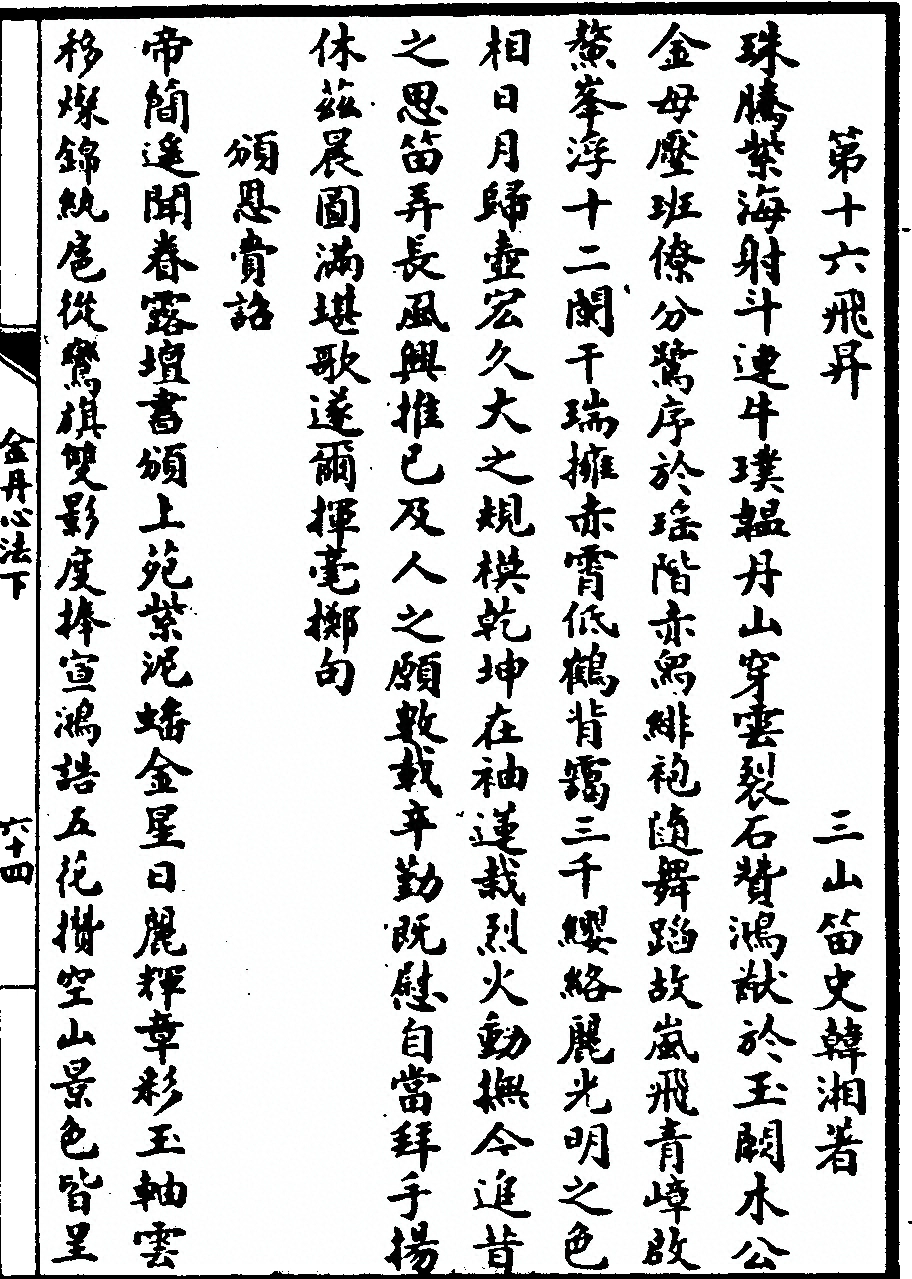 第十六飛昇 三山笛史韓湘著
珠騰紫海射斗連牛璞韞丹山穿雲裂石贊鴻猷於玉闕木公
金母壓班僚分鷺序於瑤階赤舄緋袍隨舞蹈故嵐飛青嶂啟
鰲峯浮十二闌干瑞擁赤霄低鶴背靄三千纓絡麗光明之色
相日月歸壺宏久大之規模乾坤在袖蓮栽烈火動撫今追昔
之思笛弄長風興推己及人之願數載辛勤既慰自當拜手揚
休茲晨圓滿堪歌遂爾揮毫擲句
頒恩賁詔
帝簡遙聞春露壇書頒上苑紫泥蟠金星日麗輝章彩玉軸雲
移燦錦紈扈從鸞旗雙影度捧宣鴻誥五花攢空山景色皆呈
金丹心法下 六十四